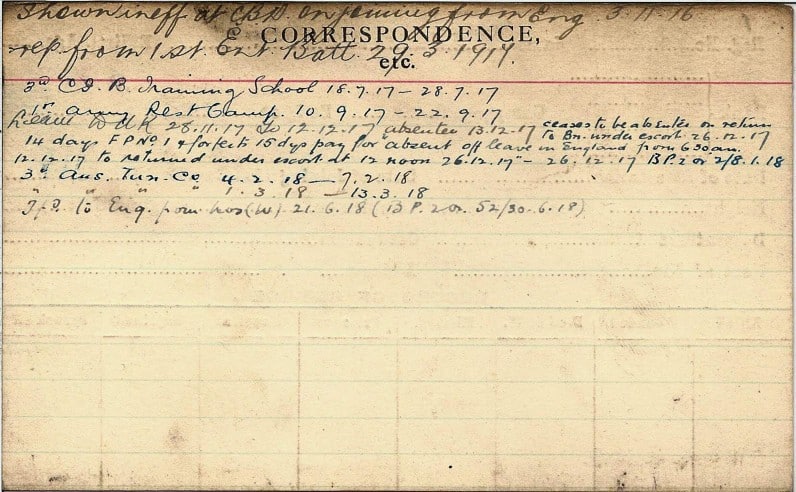 Shown ineff at CBD on joining from Eng 3.11.16
CORRESPONDENCE,
rep from 1st Ent Batt 29.3.1917.
etc.
3rd C.I.B. Training School 18.7.17 – 28.7.17
1st Army Rest Camp. 10.9.17 – 22.9.17
Leave to U.K 28.11.17 to 12.12.17 absentee 13.12.17 ceases to be absentee on return
to Bn. under escort 26.12.17
14 days F P No 1 & forfeits 15 dys pay for absent off leave in England from 630am.
12.12.17 to returned under escort at 12 noon 26.12.17" – 26.12.17 BP. 2 or 2/8.1.18
3rd Aus. Tun. Co 4.2.18 – 7.2.18
" " " " 1.3.18 – 13.3.18
Tfd. to Eng. from hos (W) 21.6.18 (B P. 2 or. 52/30.6.18)